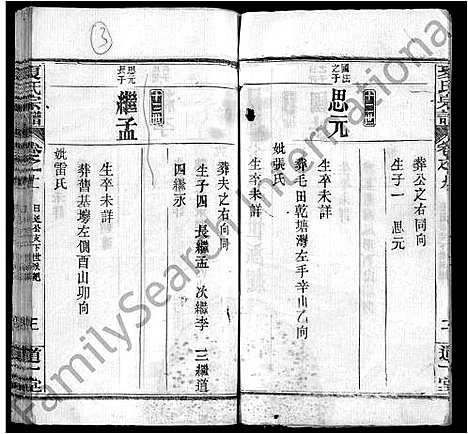 葬公之右同向
生子一 思元
十二世
國法之子
思元
生卒未詳
葬毛田乾塘灣左手辛山乙向
妣張氏
生卒未詳
葬夫之右向同
生子四 長繼孟 次繼李 三繼道
四繼永
十三世
思元長子
繼孟
生卒未詳
葬舊基塝左側酉山卯向
妣雷氏
夏氏宗譜
三
道一堂
③
FamilySearch International